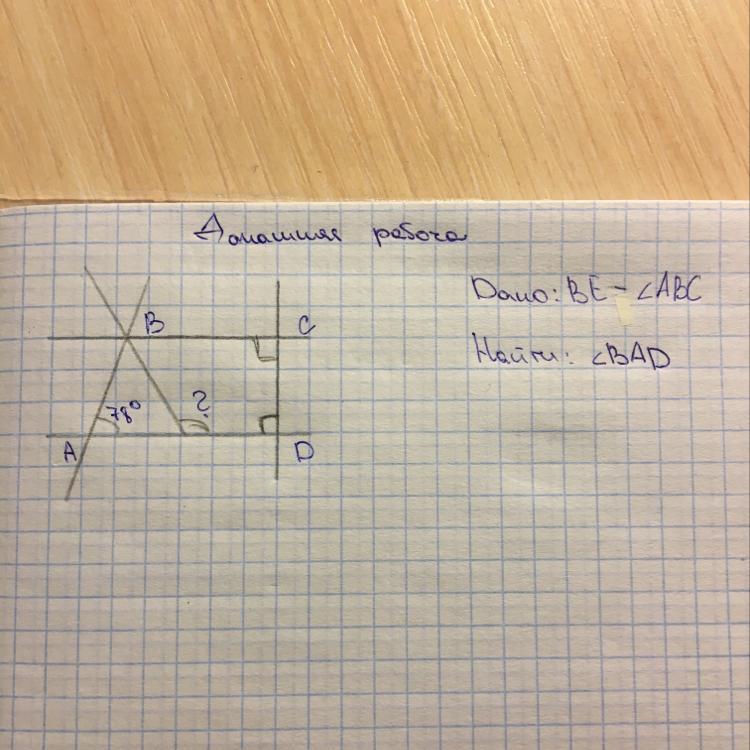 Домашняя работа
Дано: BE - ∠ABC
Найти: ∠BAD
B
C
78°
?
A
D